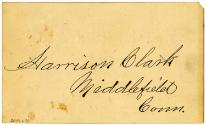 Harrison Clark
Middlefield
Conn.